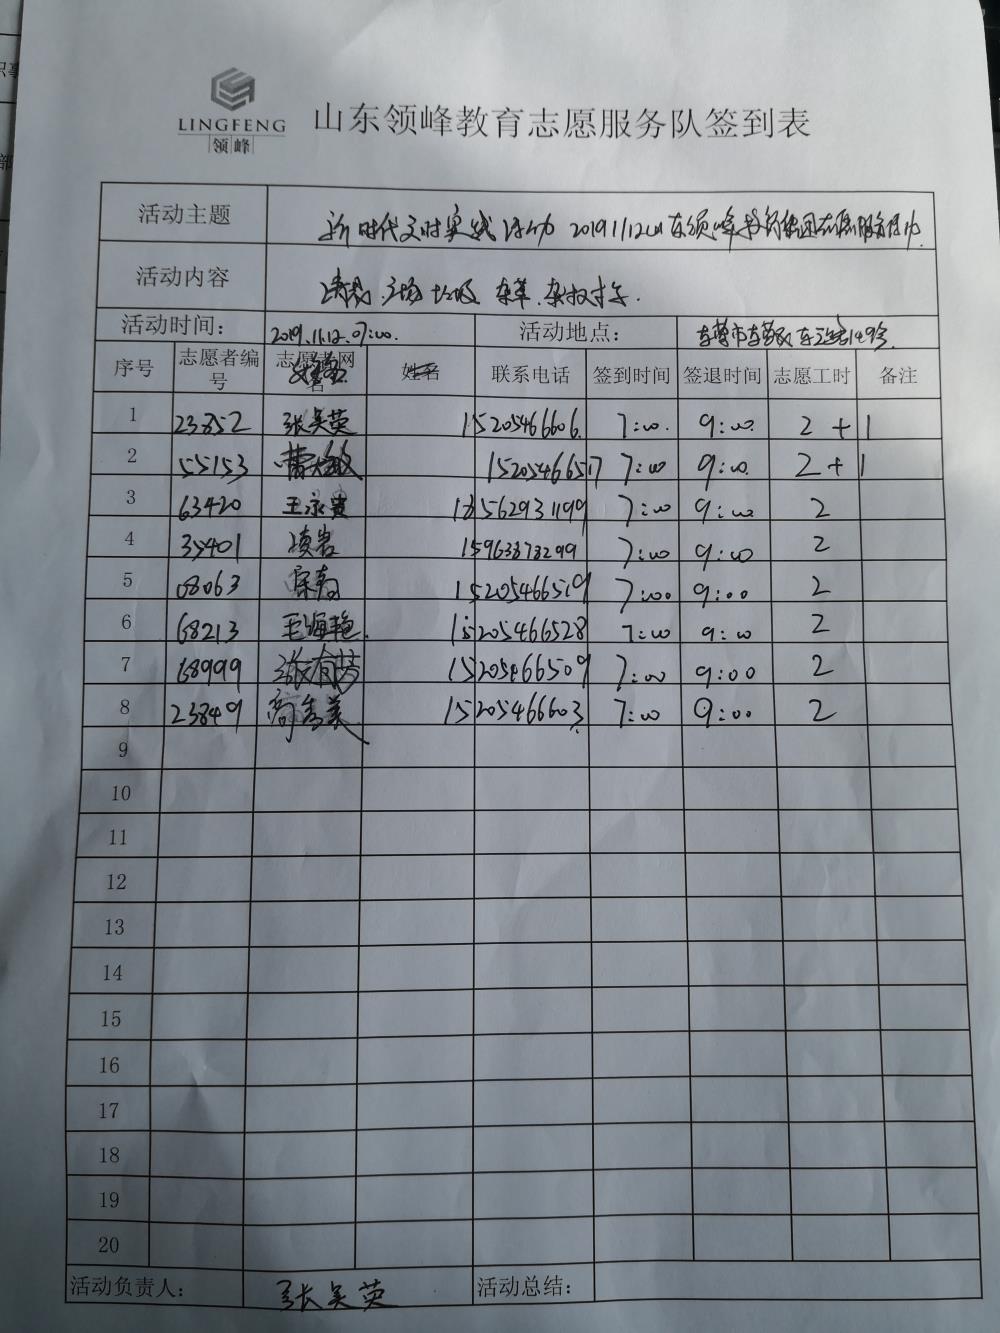 LINGFENG
领峰
山东领峰教育志愿服务队签到表
活动主题 新时代文明实践活动 20191112山东领峰教育集团志愿服务活动
活动内容 清理广场垃圾 杂草、杂物
活动时间: 2019.11.12.07:00. 活动地点: 东营市东营区东三路149号
序号 志愿者编号 志愿者网名 姓名 联系电话 签到时间 签退时间 志愿工时 备注
1 23852 张吴荣 15205466606. 7:00. 9:00. 2+1
2 55153 15205466517 7:00 9:00. 2+1
3 63420 王永贵 1562931199 7:00 9:00 2
4 35401 凌岩 15963878299 7:00 9:00 2
5 08063 15205466519 7:00 9:00 2
6 68213 毛海艳. 15205466528 7:00 9:00 2
7 68999 张有芬 15205466509 7:00 9:00 2
8 23849 商秀美 15205466603 7:00 9:00 2
9
10
11
12
13
14
15
16
17
18
19
20
活动负责人: 张吴荣 活动总结: